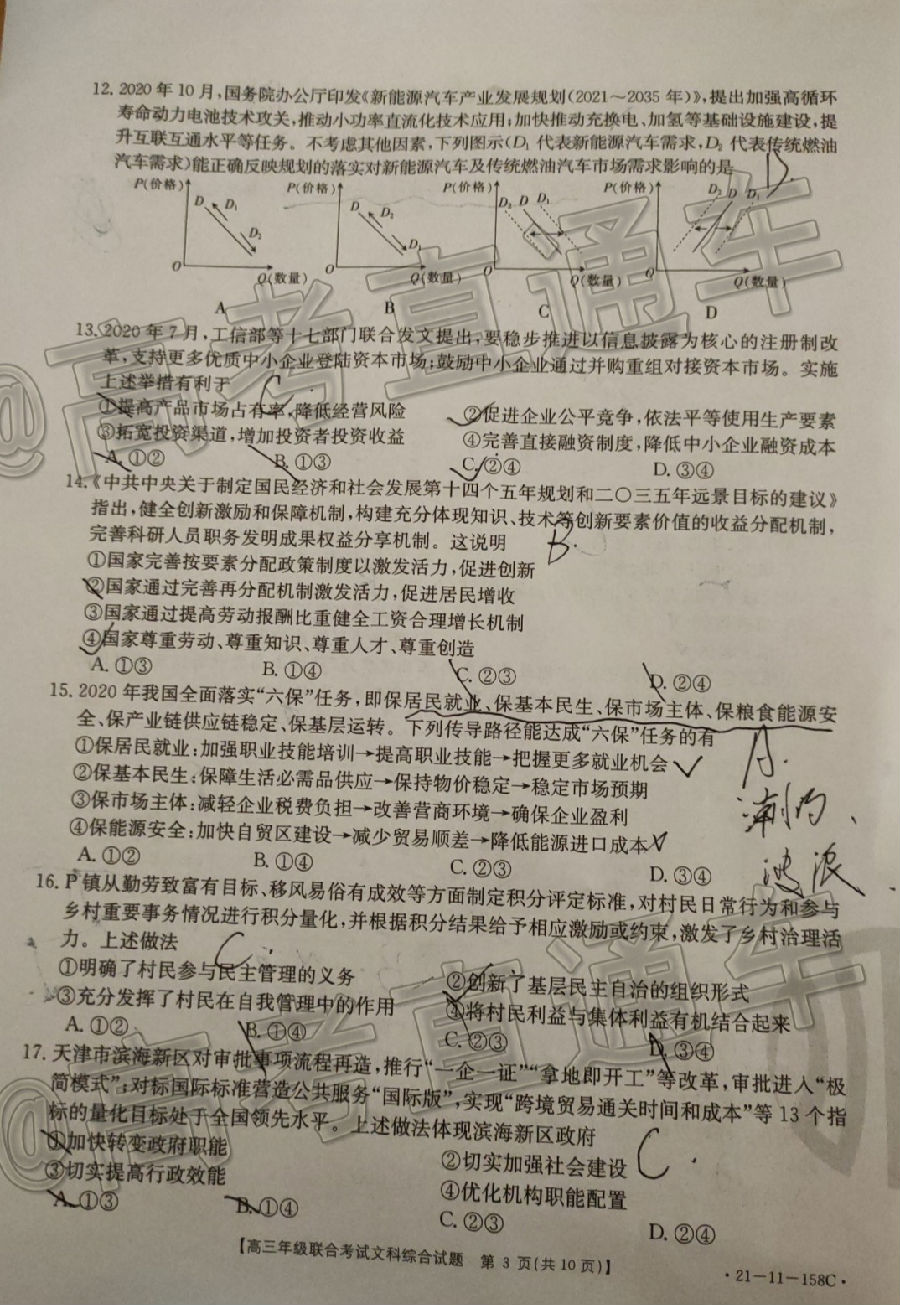 12. 2020 年 10 月,国务院办公厅印发《新能源汽车产业发展规划(2021～2035 年)》,提出加强高循环
寿命动力电池技术攻关,推动小功率直流化技术应用;加快推动充换电、加氢等基础设施建设,提
升互联互通水平等任务。不考虑其他因素,下列图示(D₁ 代表新能源汽车需求,D₂ 代表传统燃油
汽车需求)能正确反映规划的落实对新能源汽车及传统燃油汽车市场需求影响的是 D.
P(价格) P(价格) P(价格) P(价格)
D D₁ D₂ D D₂ D₁ D₂ D D₁ D₂ D D₁
O Q(数量) O Q(数量) O Q(数量) O Q(数量)
A B C D
13. 2020 年 7 月,工信部等十七部门联合发文提出,要稳步推进以信息披露为核心的注册制改
革,支持更多优质中小企业登陆资本市场;鼓励中小企业通过并购重组对接资本市场。实施
上述举措有利于 C.
①提高产品市场占有率,降低经营风险 ②促进企业公平竞争,依法平等使用生产要素
③拓宽投资渠道,增加投资者投资收益 ④完善直接融资制度,降低中小企业融资成本
A. ①② B. ①③ C. ②④ D. ③④
14.《中共中央关于制定国民经济和社会发展第十四个五年规划和二〇三五年远景目标的建议》
指出,健全创新激励和保障机制,构建充分体现知识、技术等创新要素价值的收益分配机制,
完善科研人员职务发明成果权益分享机制。这说明 B.
①国家完善按要素分配政策制度以激发活力,促进创新
②国家通过完善再分配机制激发活力,促进居民增收
③国家通过提高劳动报酬比重健全工资合理增长机制
④国家尊重劳动、尊重知识、尊重人才、尊重创造
A. ①③ B. ①④ C. ②③ D. ②④
15. 2020 年我国全面落实“六保”任务,即保居民就业、保基本民生、保市场主体、保粮食能源安
全、保产业链供应链稳定、保基层运转。下列传导路径能达成“六保”任务的有 A.
①保居民就业:加强职业技能培训→提高职业技能→把握更多就业机会
②保基本民生:保障生活必需品供应→保持物价稳定→稳定市场预期
③保市场主体:减轻企业税费负担→改善营商环境→确保企业盈利
④保能源安全:加快自贸区建设→减少贸易顺差→降低能源进口成本
A. ①② B. ①④ C. ②③ D. ③④
16. P 镇从勤劳致富有目标、移风易俗有成效等方面制定积分评定标准,对村民日常行为和参与
乡村重要事务情况进行积分量化,并根据积分结果给予相应激励或约束,激发了乡村治理活
力。上述做法 C.
①明确了村民参与民主管理的义务 ②创新了基层民主自治的组织形式
③充分发挥了村民在自我管理中的作用 ④将村民利益与集体利益有机结合起来
A. ①② B. ①④ C. ②③ D. ③④
17. 天津市滨海新区对审批事项流程再造,推行“一企一证”“拿地即开工”等改革,审批进入“极
简模式”;对标国际标准营造公共服务“国际版”,实现“跨境贸易通关时间和成本”等 13 个指
标的量化目标处于全国领先水平。上述做法体现滨海新区政府 C.
①加快转变政府职能 ②切实加强社会建设
③切实提高行政效能 ④优化机构职能配置
A. ①③ B. ①④ C. ②③ D. ②④
【高三年级联合考试文科综合试题 第 3 页(共 10 页)】
·21-11-158C·
@高考直通车
@高考直通车